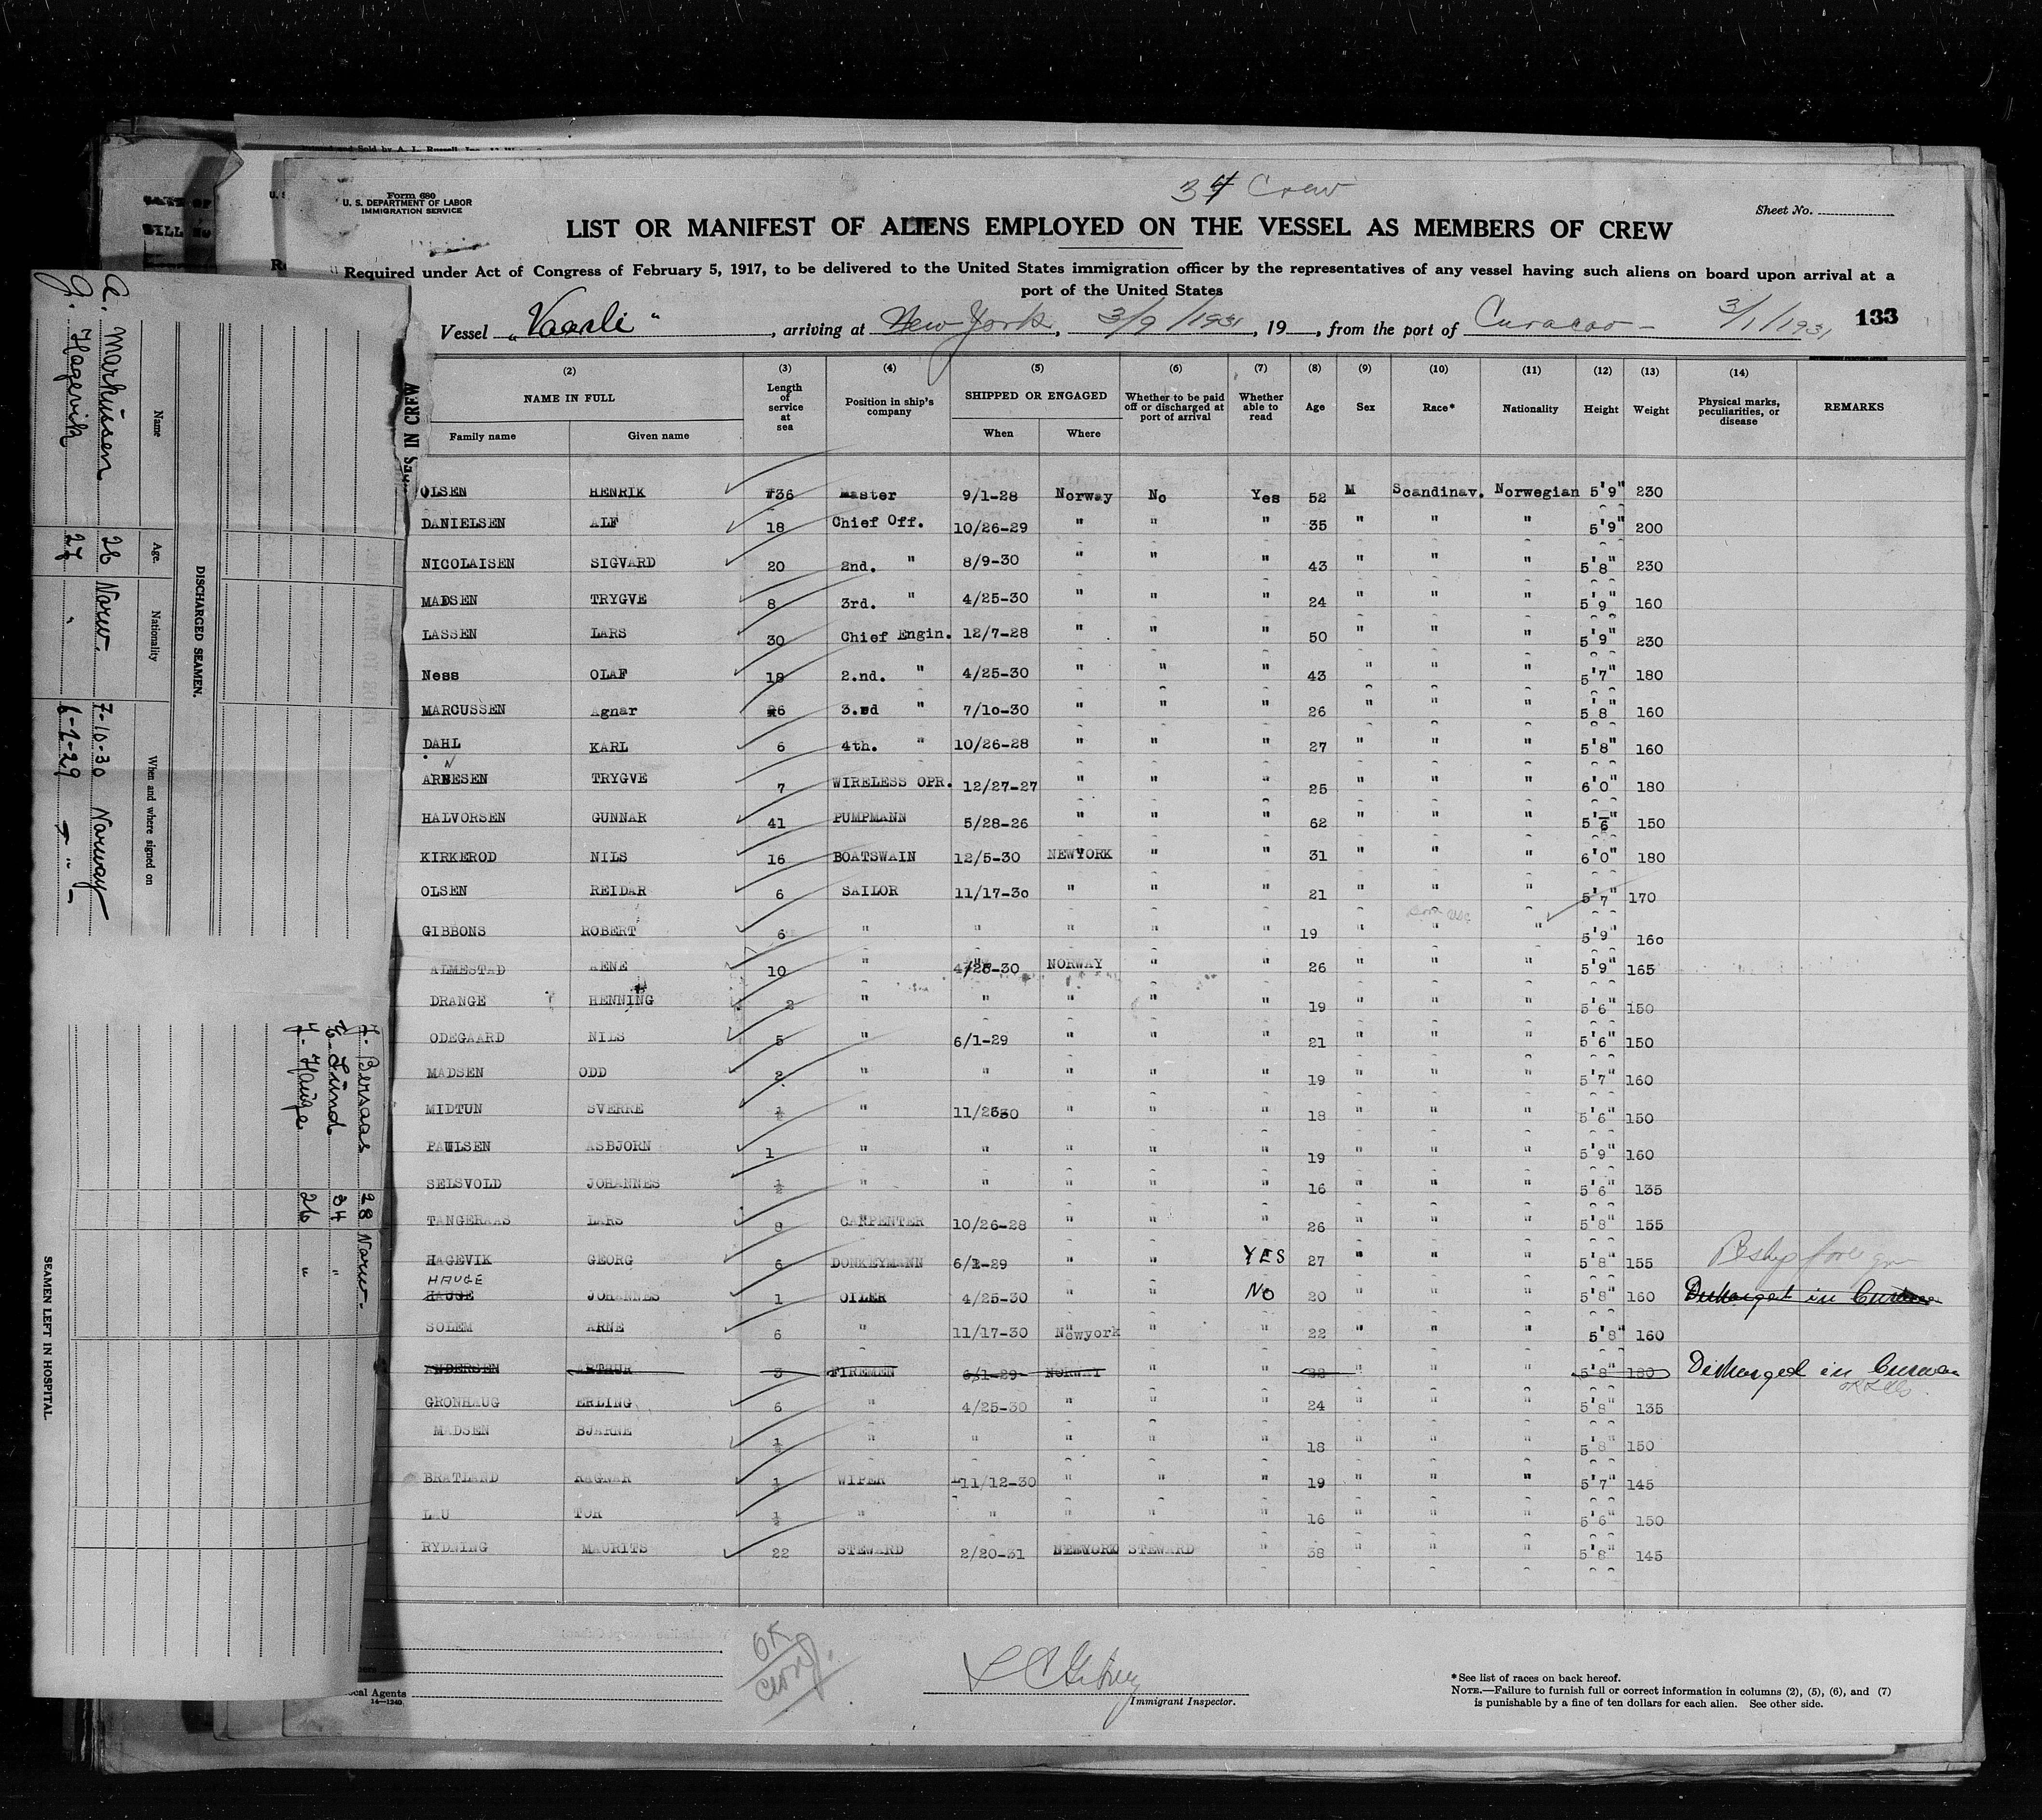 Form 680
U. S. DEPARTMENT OF LABOR
IMMIGRATION SERVICE
34 Crew
Sheet No.
LIST OR MANIFEST OF ALIENS EMPLOYED ON THE VESSEL AS MEMBERS OF CREW
Required under Act of Congress of February 5, 1917, to be delivered to the United States immigration officer by the representatives of any vessel having such aliens on board upon arrival at a
port of the United States
Vessel "Vaarli", arriving at New York, 3/9/1931, 19, from the port of Curacao - 3/1/1931 133
(2) (3) (4) (5) (6) (7) (8) (9) (10) (11) (12) (13) (14)
NAME IN FULL Length of service at sea Position in ship's company SHIPPED OR ENGAGED Whether to be paid off or discharged at port of arrival Whether able to read Age Sex Race* Nationality Height Weight Physical marks, peculiarities, or disease REMARKS
Family name Given name When Where
OLSEN HENRIK 36 Master 9/1-28 Norway No Yes 52 M Scandinav. Norwegian 5'9" 230
DANIELSEN ALF 18 Chief Off. 10/26-29 " " " 35 " " " 5'9" 200
NICOLAISEN SIGVARD 20 2nd. " 8/9-30 " " " 43 " " " 5'8" 230
MADSEN TRYGVE 8 3rd. " 4/25-30 " " " 24 " " " 5'9" 160
LASSEN LARS 30 Chief Engin. 12/7-28 " " " 50 " " " 5'9" 230
Ness OLAF 18 2.nd. " 4/25-30 " " " 43 " " " 5'7" 180
MARCUSSEN Agnar 6 3.rd " 7/10-30 " " " 26 " " " 5'8" 160
DAHL KARL 6 4th. " 10/26-28 " " " 27 " " " 5'8" 160
ARNESEN TRYGVE 7 WIRELESS OPR. 12/27-27 " " " 25 " " " 6'0" 180
HALVORSEN GUNNAR 41 PUMPMANN 5/28-26 " " " 62 " " " 5'6" 150
KIRKEROD NILS 16 BOATSWAIN 12/5-30 NEWYORK " " 31 " " " 6'0" 180
OLSEN REIDAR 6 SAILOR 11/17-30 " " " 21 " " " 5'7" 170
born USA
GIBBONS ROBERT 6 " " " " " 19 " " " 5'9" 160
ALMESTAD ARNE 10 " 4/28-30 NORWAY " " 26 " " " 5'9" 165
DRANGE HENNING 2 " " " " " 19 " " " 5'6" 150
ODEGAARD NILS 5 " 6/1-29 " " " 21 " " " 5'6" 150
MADSEN ODD 2 " " " " " 19 " " " 5'7" 160
MIDTUN SVERRE ½ " 11/26-30 " " " 18 " " " 5'6" 150
PAULSEN ASBJORN 1 " " " " " 19 " " " 5'9" 160
SELSVOLD JOHANNES ½ " " " " " 16 " " " 5'6" 135
TANGERAAS LARS 8 CARPENTER 10/26-28 " " " 26 " " " 5'8" 155
HAGEVIK GEORG 6 DONKEYMANN 6/1-29 " " YES 27 " " " 5'8" 155 Reship
HAUGE
HAUGE JOHANNES 1 OILER 4/25-30 " " No 20 " " " 5'8" 160 Discharged in Curacao
SOLEM ARNE 6 " 11/17-30 Newyork " " 22 " " " 5'8" 160
ANDERSEN ARTHUR 3 FIREMEN 6/1-29 NORWAY " " 22 " " " 5'8" 180 Discharged in Curacao
GRONHAUG ERLING 6 " 4/25-30 " " " 24 " " " 5'8" 135
MADSEN BJARNE ½ " " " " " 18 " " " 5'8" 150
BRATLAND RAGNAR ½ WIPER 11/12-30 " " " 19 " " " 5'7" 145
LAU TOR ½ " " " " " 16 " " " 5'6" 150
RYDNING MAURITS 22 STEWARD 2/20-31 NEWYORK STEWARD " 38 " " " 5'8" 145
OK
Immigrant Inspector.
Local Agents
14—1240
*See list of races on back hereof.
NOTE.—Failure to furnish full or correct information in columns (2), (5), (6), and (7)
is punishable by a fine of ten dollars for each alien. See other side.
S IN CREW
DISCHARGED SEAMEN.
Name Age. Nationality When and where signed on
A. Markussen 26 Norw. 7-10-30 Norway
G. Hagevik 27 " 6-1-29 - " -
J. Bersaas 28 Norw.
E. Lund 34 "
J. Hauge 26 "
SEAMEN LEFT IN HOSPITAL